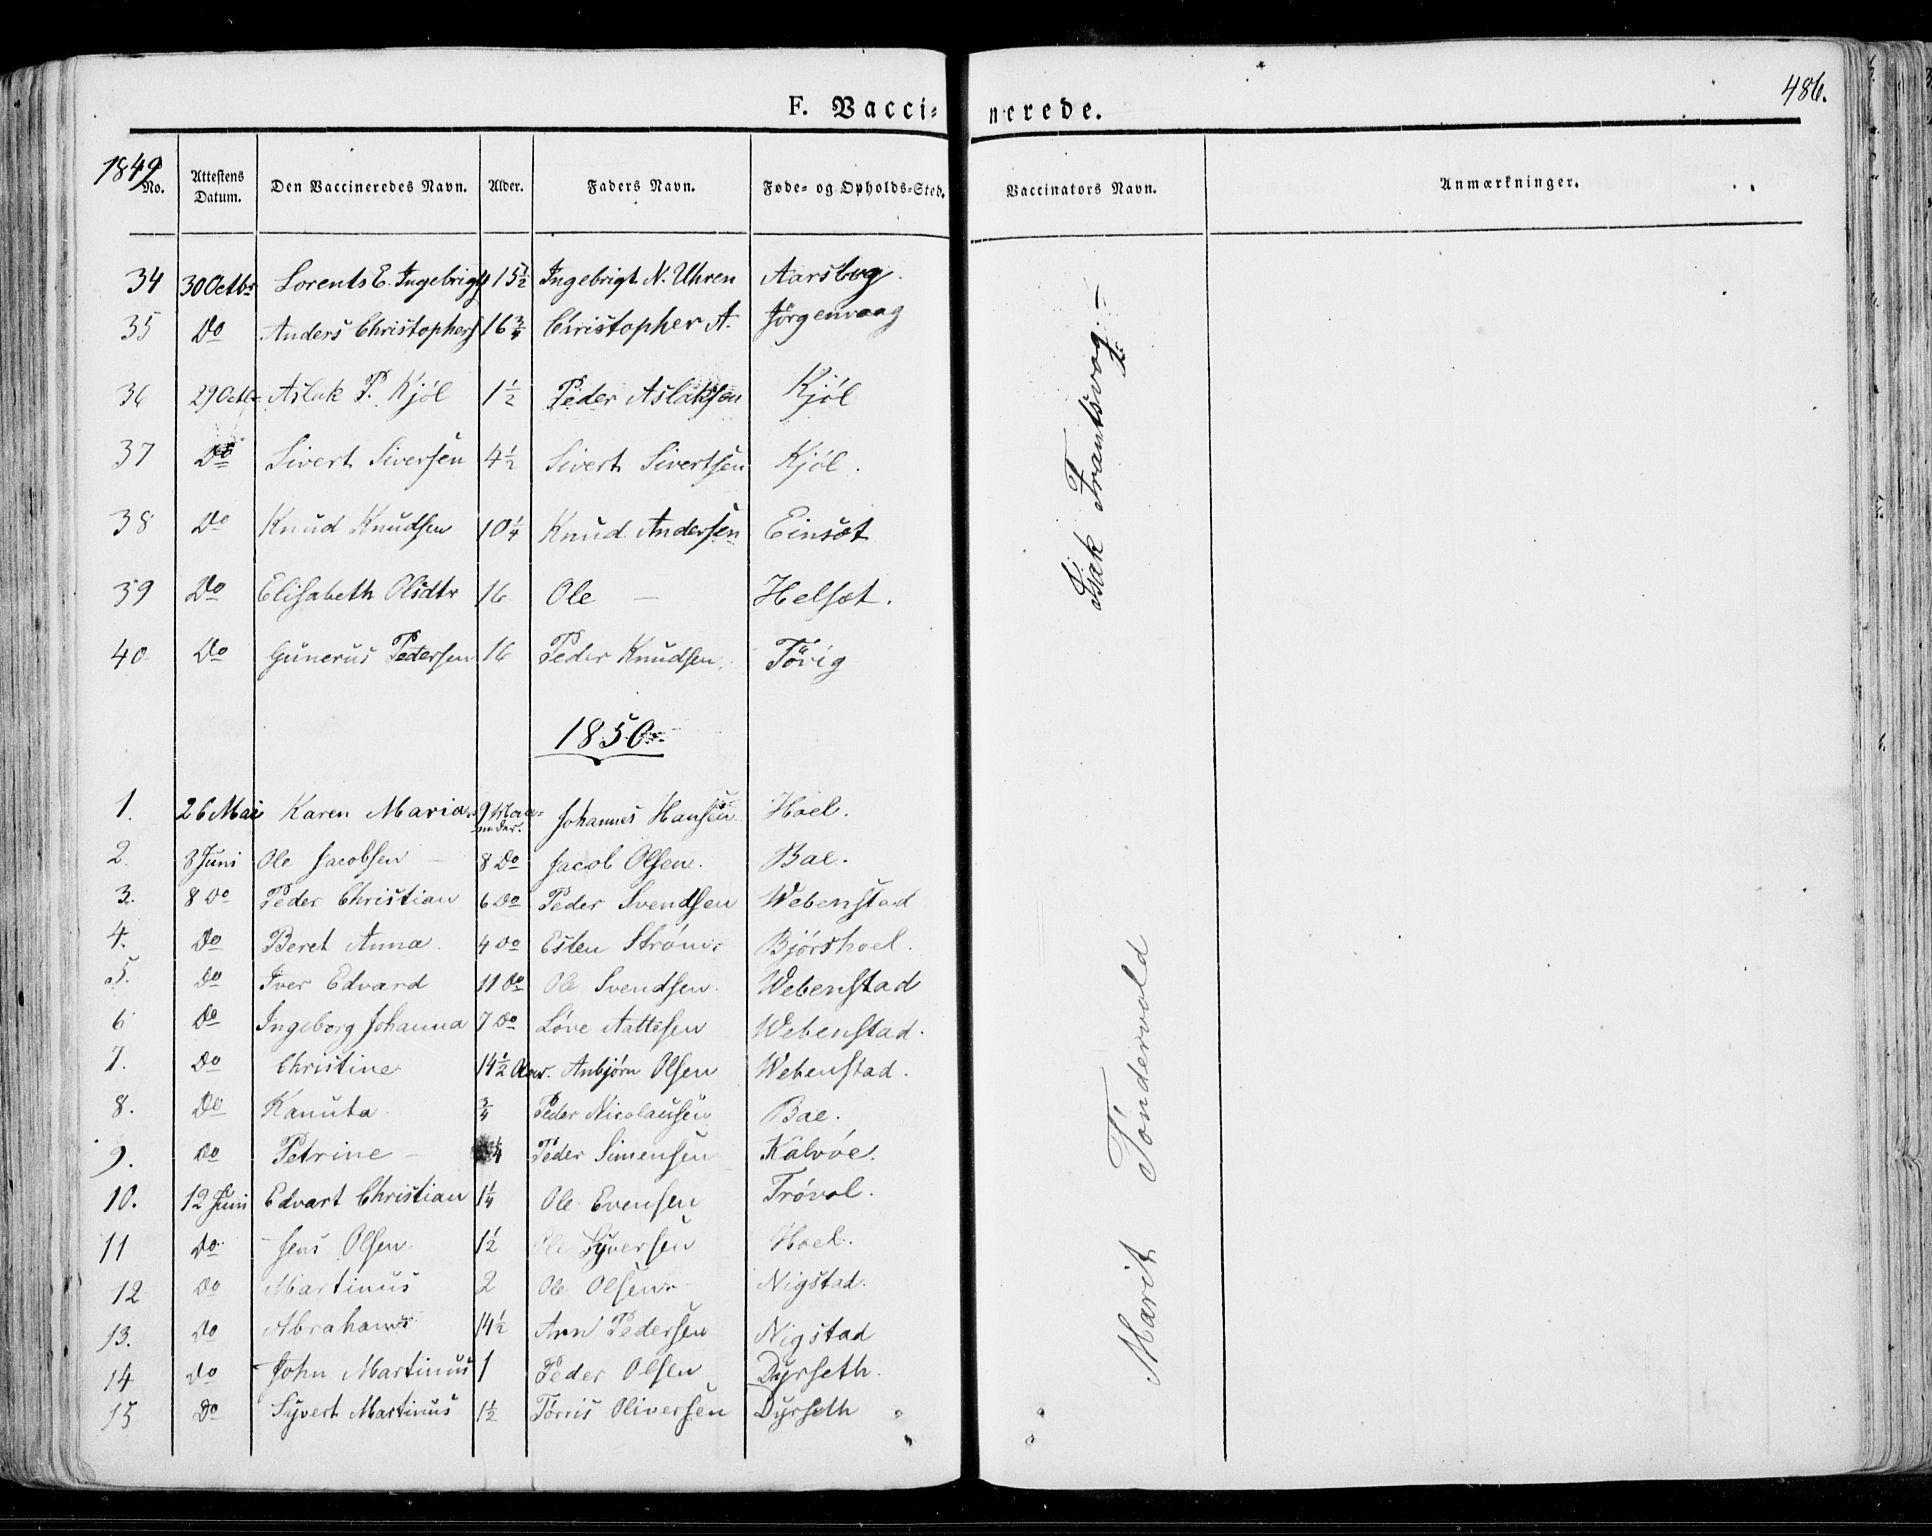 486.
F. Vaccinerede.
1849
No. Attestens Datum. Den Vaccineredes Navn. Alder. Faders Navn. Føde- og Opholds-Sted. Vaccinators Navn. Anmærkninger.
34 30 Octbr Lorents E. Ingebrigts 15½ Ingebrigt N. Uhren Aarsbog.
35 Do Anders Christophers 16¾ Christopher A. Jørgenvaag
36 29 Octbr Aslak P. Kjøl 1½ Peder Aslaksen Kjøl
37 Do Sivert Siversen 4½ Sivert Sivertsen Kjøl.
38 Do Knud Knudsen 10¼ Knud Andersen Einsæt
39 Do Elisabeth Olsdtr 16 Ole — Helsæt.
40 Do Gunerus Pedersen 16 Peder Knudsen. Tøvig
Isak Frantsvog.
1850
1. 26 Mai Karen Maria. 9 Maaneder. Johannes Hansen Hoel.
2. 8 Juni Ole Jacobsen 8 Do Jacob Olsen. Bae.
3. 8 Do Peder Christian 6 Do Peder Svendsen Webenstad
4. Do Beret Anna. 4 Do Esten Strøm. Bjørshoel.
5. Do Iver Edvard 11 Do Ole Svendsen. Webenstad
6 Do Ingeborg Johanna 7 Do Løve Aattesen Webenstad.
7. Do Christine 14½ Aar. Anbjørn Olsen Webenstad.
8. Do Kanuta ¾ Peder Nicolausen Bae.
9. Do Petrine — ¼ Peder Simensen Kalvøe.
10. 12 Juni Edvart Christian 1¼ Ole Evensen Trøvol.
11 Do Jens Olsen 1½ Ole Syversen Hoel.
12 Do Martinus 2 Ole Olsen Nigstad.
13. Do Abraham 14½ Arn Pedersen Nigstad
14 Do John Martinus 1 Peder Olsen Dyrseth.
15 Do Syvert Martinus 1½ Tørris Oliversen Dyrseth
Marit Tøndervold